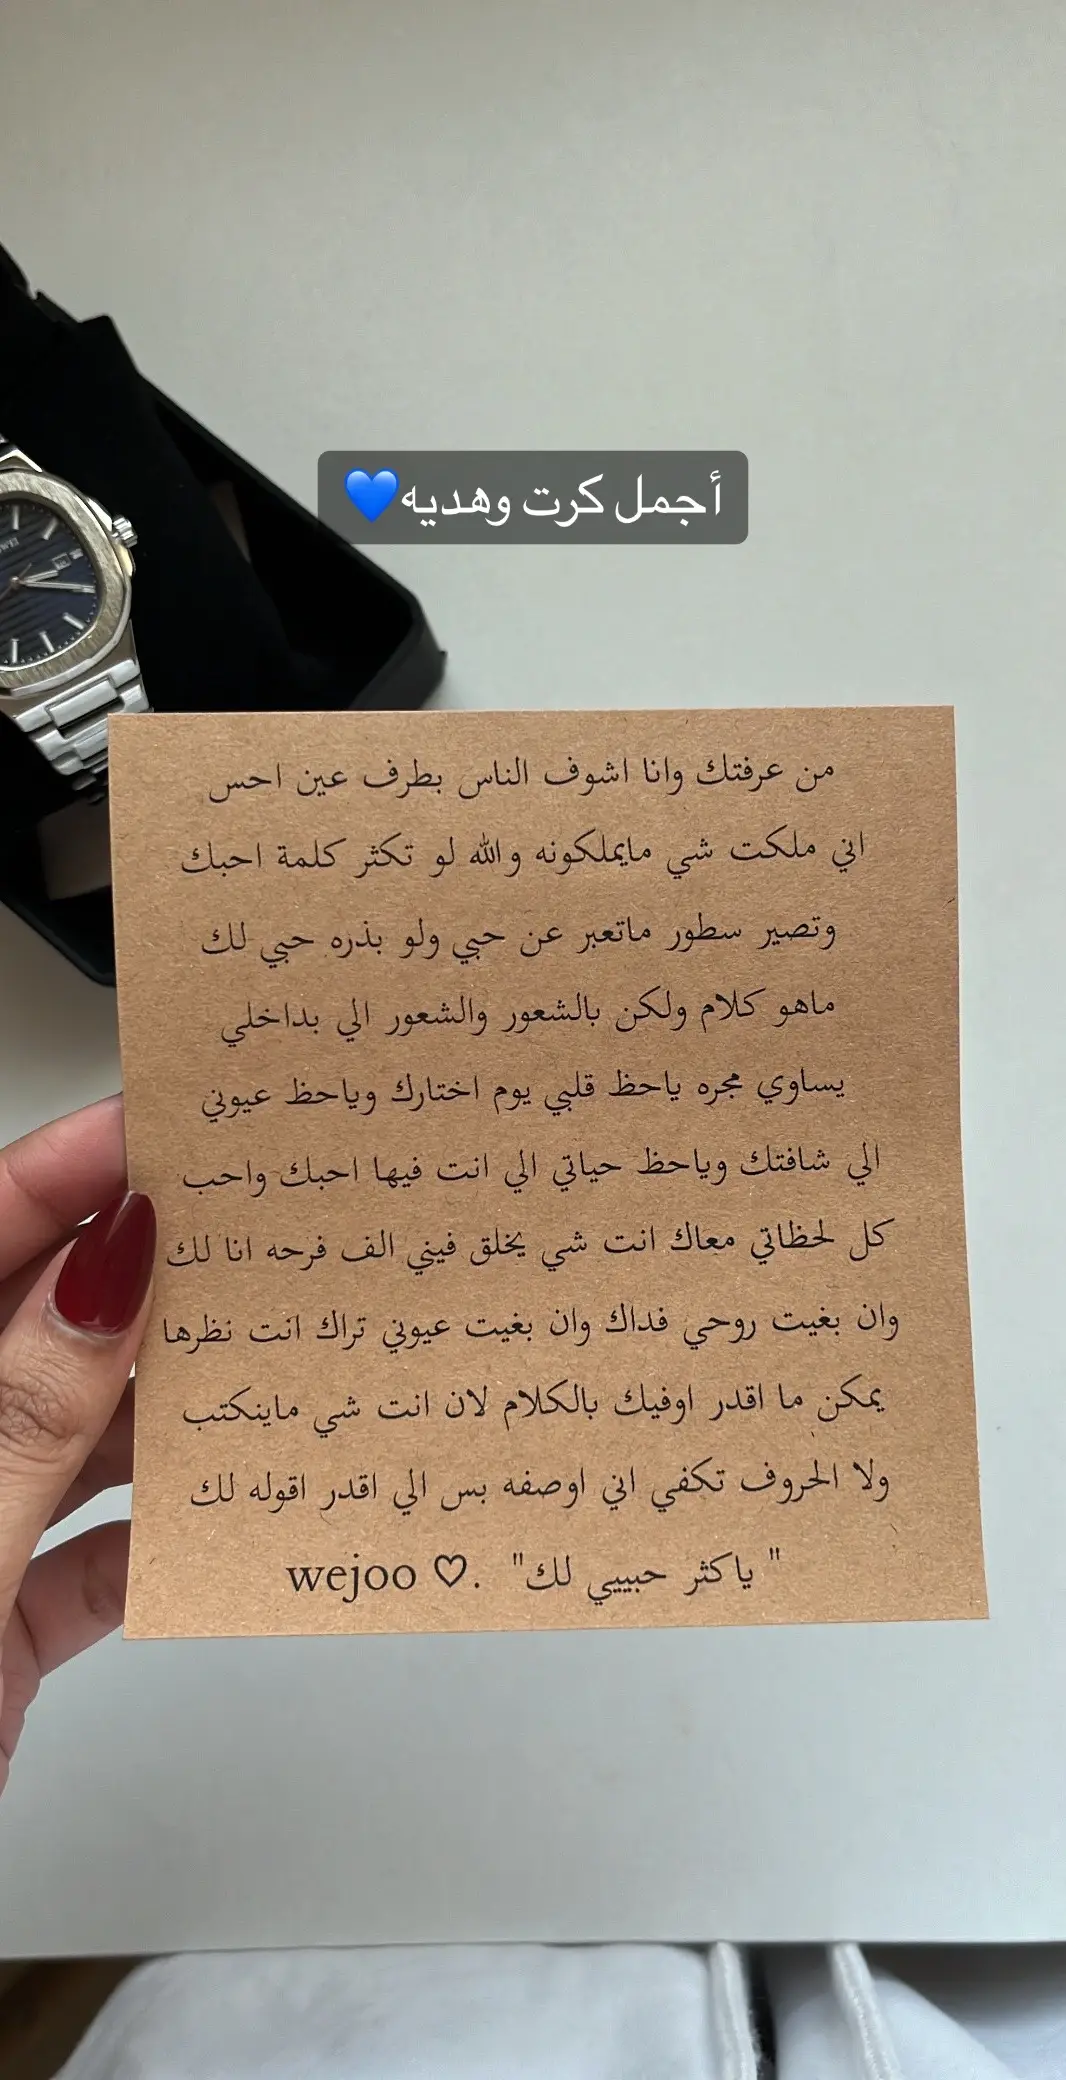 أجمل كرت وهديه💙
من عرفتك وانا اشوف الناس بطرف عين احس
اني ملكت شي مايملكونه والله لو تكثر كلمة احبك
وتصير سطور ماتعبر عن حبي ولو بذره حبي لك
ماهو كلام ولكن بالشعور والشعور الي بداخلي
يساوي مجره ياحظ قلبي يوم اختارك وياحظ عيوني
الي شافتك وياحظ حياتي الي انت فيها احبك واحب
كل لحظاتي معاك انت شي يخلق فيني الف فرحه انا لك
وان بغيت روحي فداك وان بغيت عيوني تراك انت نظرها
يمكن ما اقدر اوفيك بالكلام لان انت شي ماينكتب
ولا الحروف تكفي اني اوصفه بس الي اقدر اقوله لك
" ياكثر حبيبي لك" .♡ wejoo